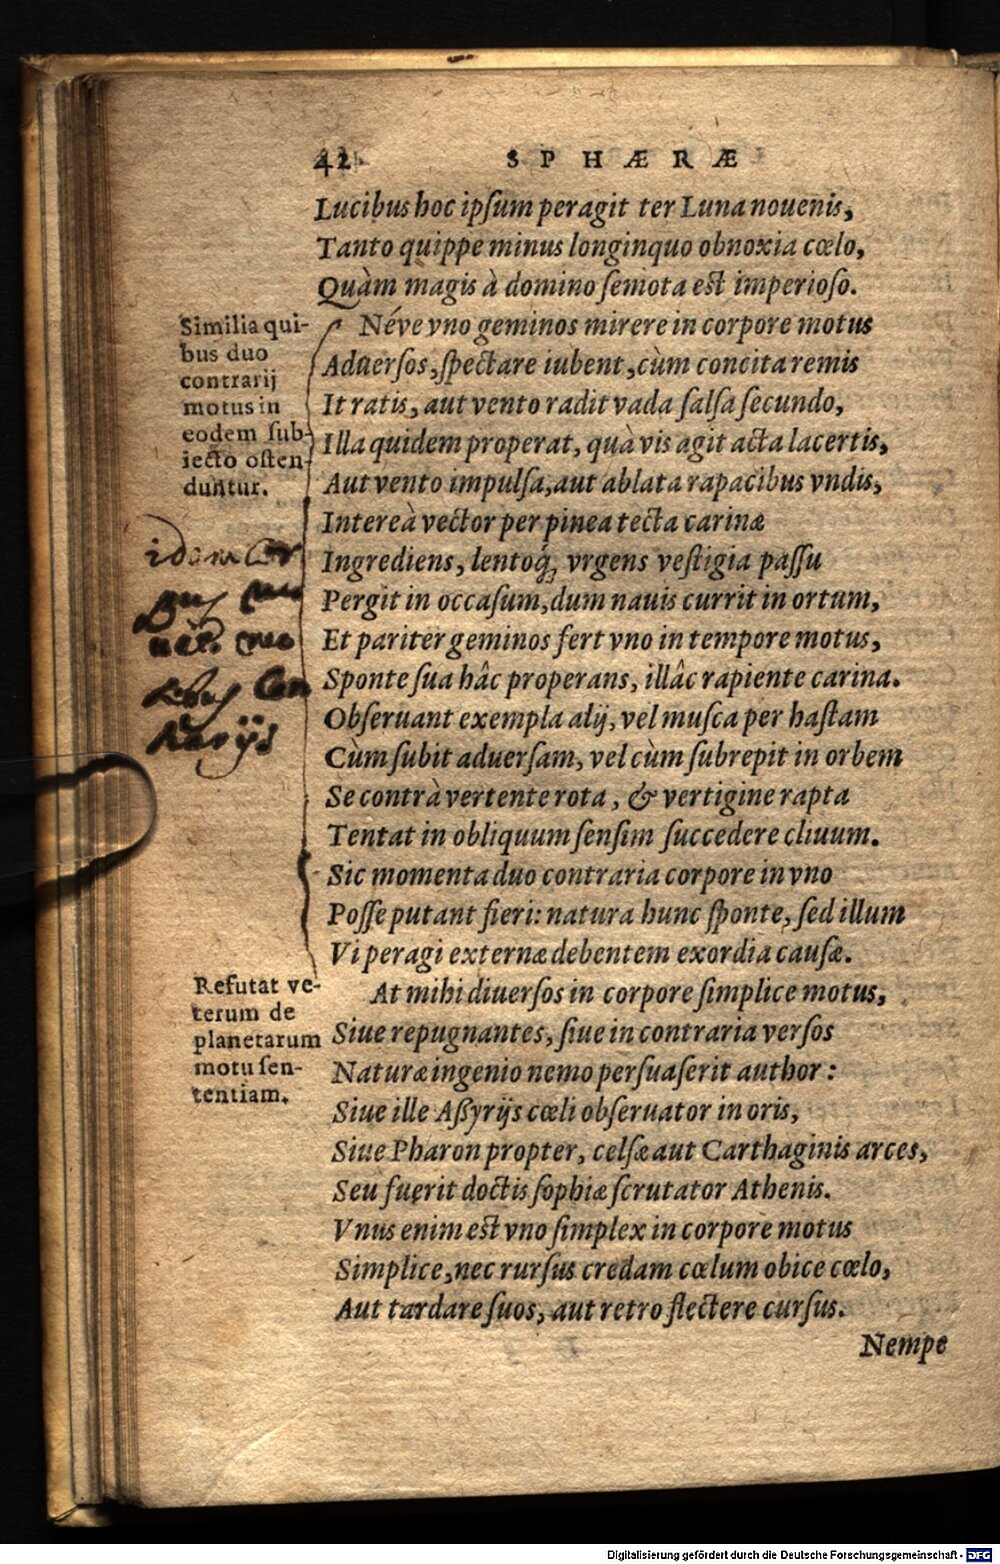 42 SPHÆRÆ
Lucibus hoc ipſum peragit ter Luna nouenis,
Tanto quippe minus longinquo obnoxia cœlo,
Quàm magis à domino ſemota est imperioſo.
Similia qui-
bus duo
contrarij
motus in
eodem ſub-
iecto oſten-
duntur.
Néve vno geminos mirere in corpore motus
Aduerſos, ſpectare iubent, cùm concita remis
It ratis, aut vento radit vada ſalſa ſecundo,
Illa quidem properat, quà vis agit acta lacertis,
Aut vento impulſa, aut ablata rapacibus vndis,
Intereà vector per pinea tecta carinæ
Ingrediens, lentoq́; vrgens veſtigia paſſu
Pergit in occaſum, dum nauis currit in ortum,
Et pariter geminos fert vno in tempore motus,
Sponte ſua hâc properans, illâc rapiente carina.
Obſeruant exempla alij, vel muſca per haſtam
Cùm ſubit aduerſam, vel cùm ſubrepit in orbem
Se contrà vertente rota, & vertigine rapta
Tentat in obliquum ſenſim ſuccedere cliuum.
Sic momenta duo contraria corpore in vno
Poſſe putant fieri: natura hunc ſponte, ſed illum
Vi peragi externæ debentem exordia cauſæ.
idem cor
pus
Refutat ve-
terum de
planetarum
motu ſen-
tentiam.
At mihi diuerſos in corpore ſimplice motus,
Siue repugnantes, ſiue in contraria verſos
Naturæ ingenio nemo perſuaſerit author:
Siue ille Aßyrijs cœli obſeruator in oris,
Siue Pharon propter, celſæ aut Carthaginis arces,
Seu fuerit doctis ſophiæ ſcrutator Athenis.
Vnus enim est vno ſimplex in corpore motus
Simplice, nec rurſus credam cœlum obice cœlo,
Aut tardare ſuos, aut retro flectere curſus.
Nempe
Digitalisierung gefördert durch die Deutsche Forschungsgemeinschaft - DFG